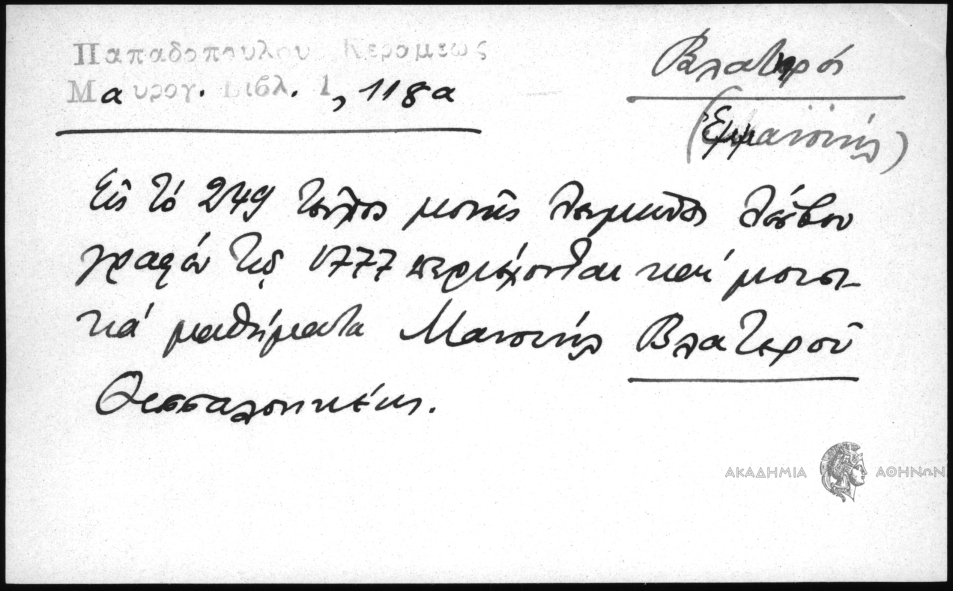 Παπαδοπούλου Κεραμέως
Μαυρογ. Βιβλ. 1, 118α
Βλατηρός
(Ἐμμανουὴλ)
Εἰς τό 249 μονῆς Λειμῶνος Λέσβου
γραφὲν τῷ 1777 περιέχονται καί μουσι-
κά μαθήματα Μανουὴλ Βλατηροῦ
Θεσσαλονικέως.
ΑΚΑΔΗΜΙΑ ΑΘΗΝΩΝ